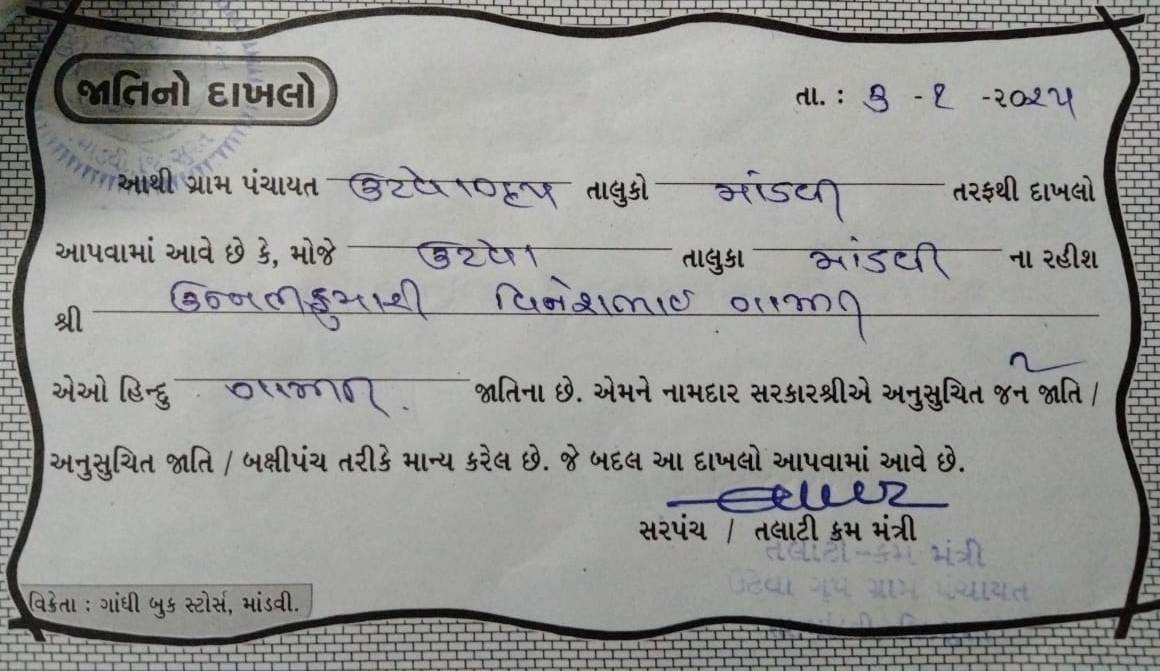 જાતિનો દાખલો
તા. : ૩ - ૧ - ૨૦૨૫
આથી ગ્રામ પંચાયત ઉટેવા ગૃપ તાલુકો માંડવી તરફથી દાખલો
આપવામાં આવે છે કે, મોજે ઉટેવા તાલુકા માંડવી ના રહીશ
શ્રી દિનેશભાઇ ગામીત
એઓ હિન્દુ ગામીત. જાતિના છે. એમને નામદાર સરકારશ્રીએ અનુસુચિત જન જાતિ /
અનુસુચિત જાતિ / બક્ષીપંચ તરીકે માન્ય કરેલ છે. જે બદલ આ દાખલો આપવામાં આવે છે.
સરપંચ / તલાટી કમ મંત્રી
તલાટી-કમ મંત્રી
ઉટેવા ગૃપ ગ્રામ પંચાયત
વિક્રેતા : ગાંધી બુક સ્ટોર્સ, માંડવી.